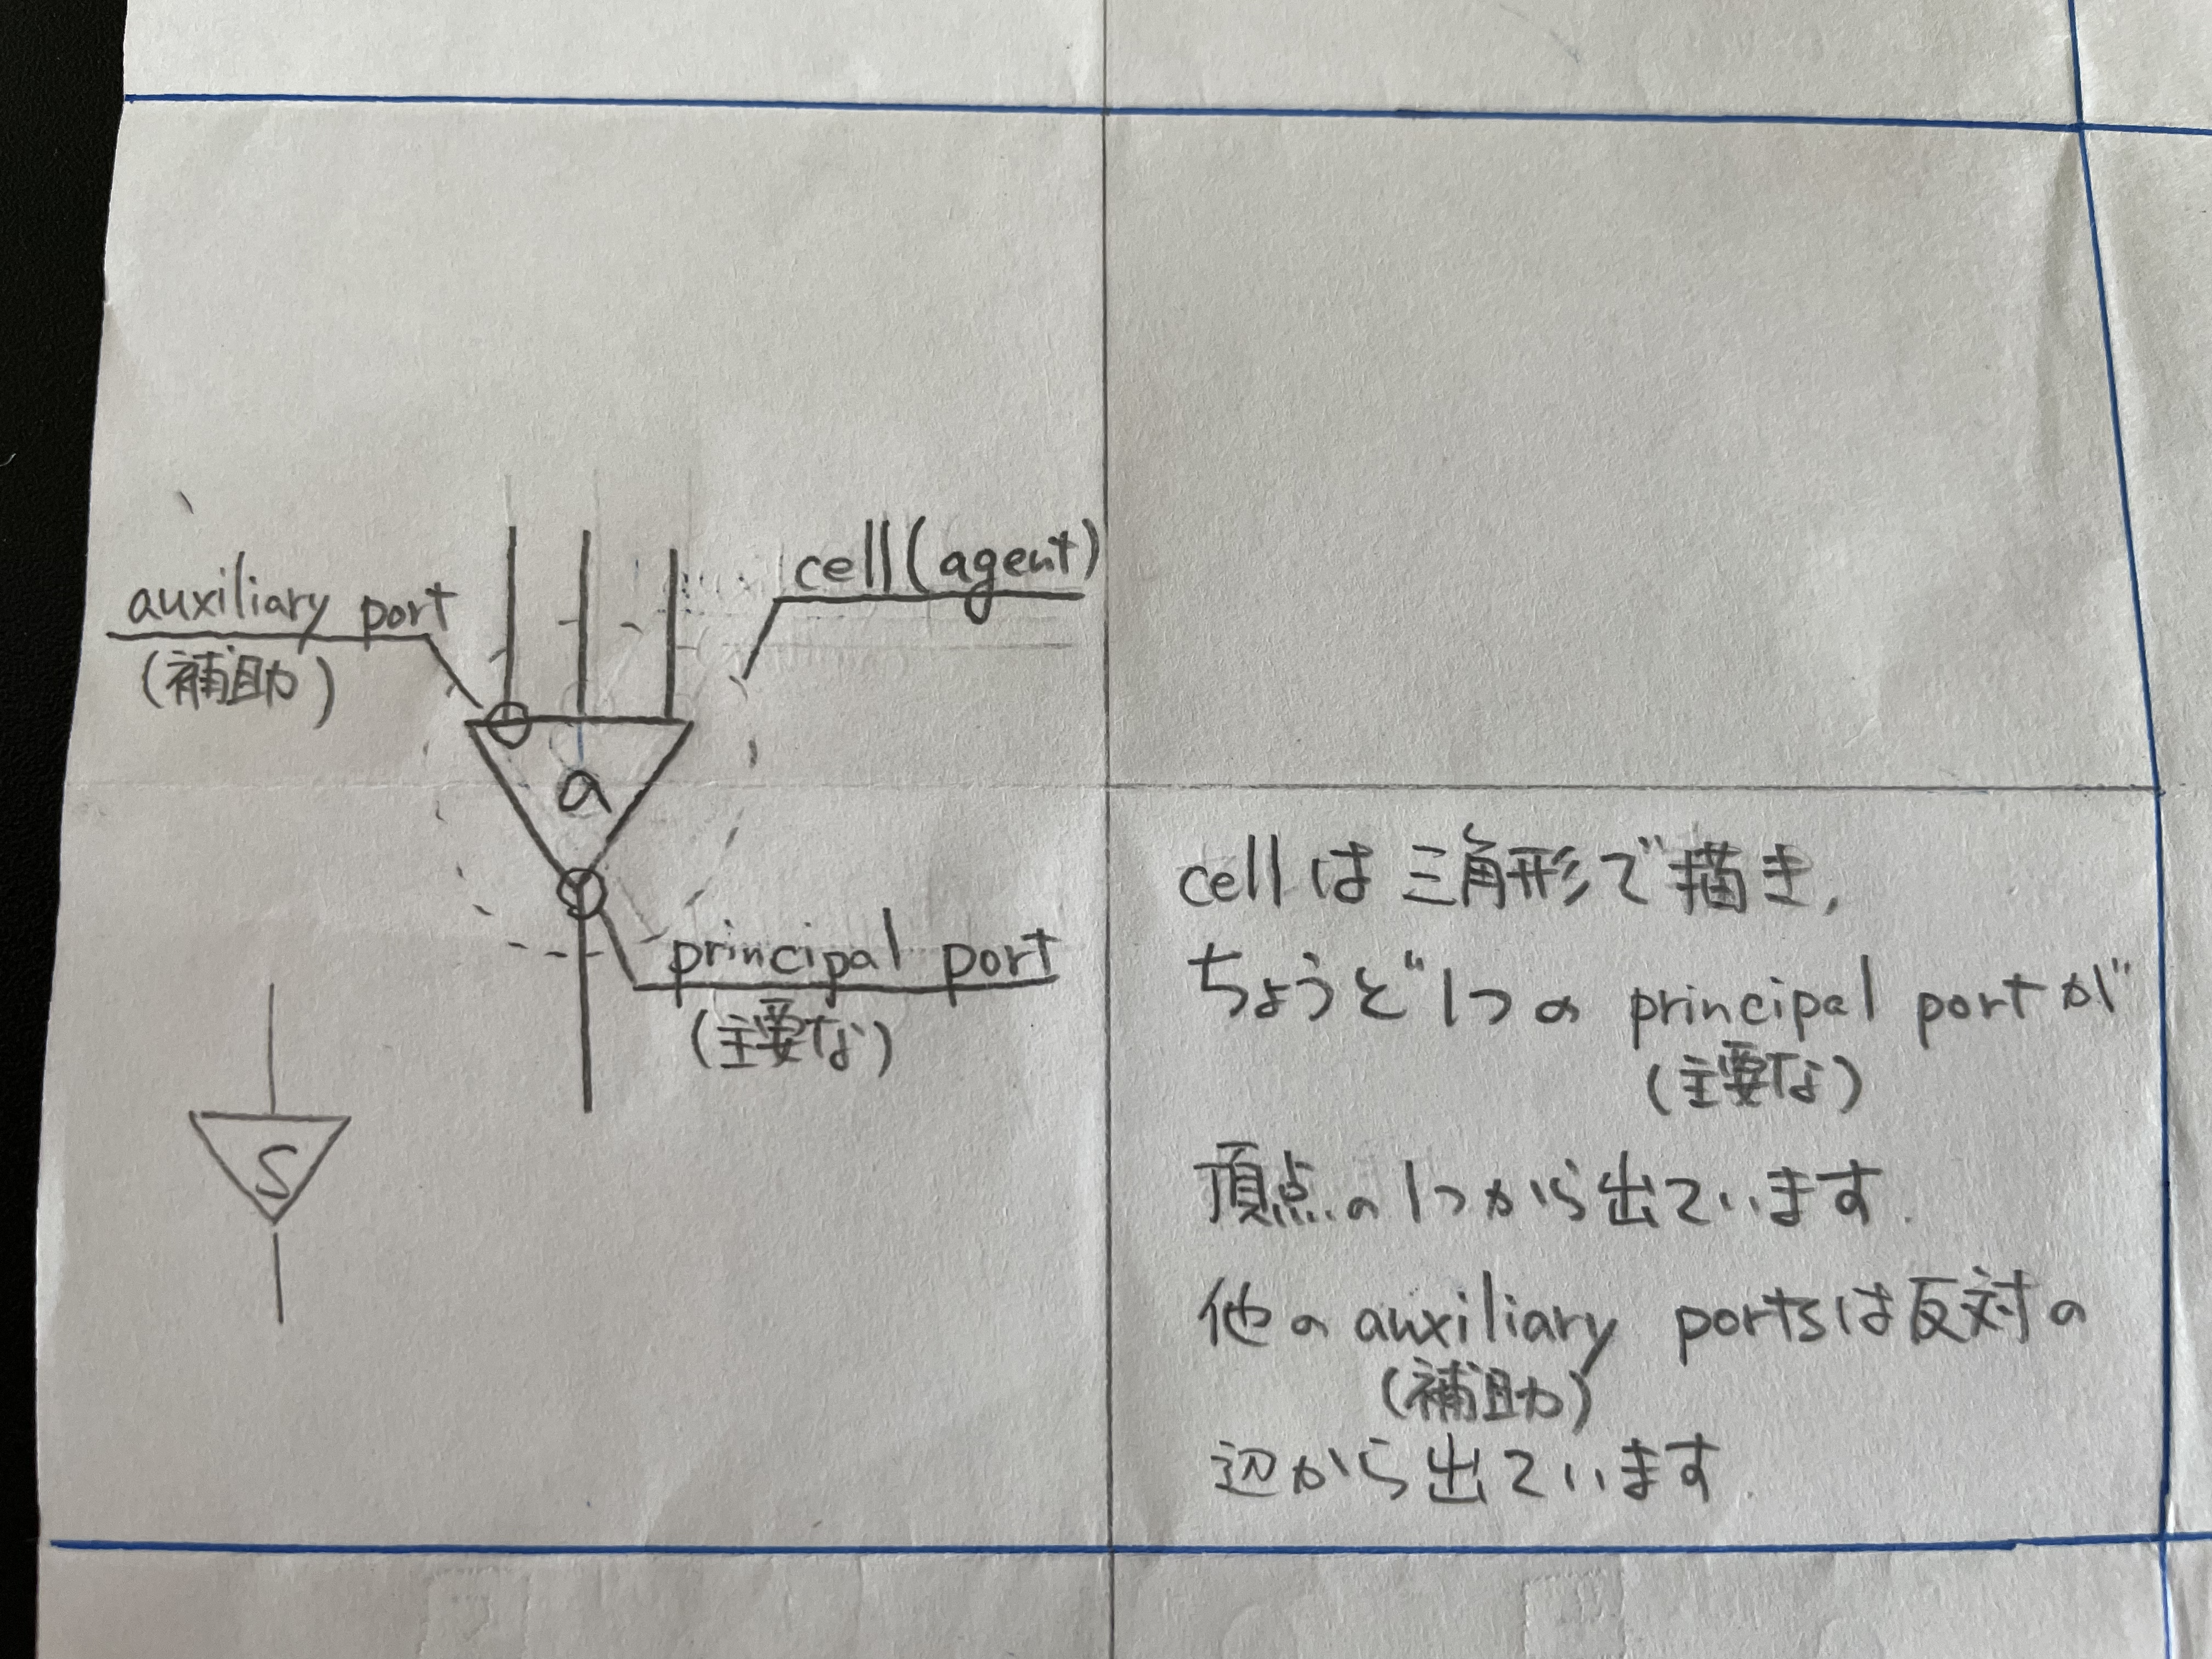 cell(agent)
auxiliary port
(補助)
a
principal port
(主要な)
S
cellは三角形で描き,
ちょうど1つの principal portが
(主要な)
頂点の1つから出ています.
他の auxiliary portsは反対の
(補助)
辺から出ています.